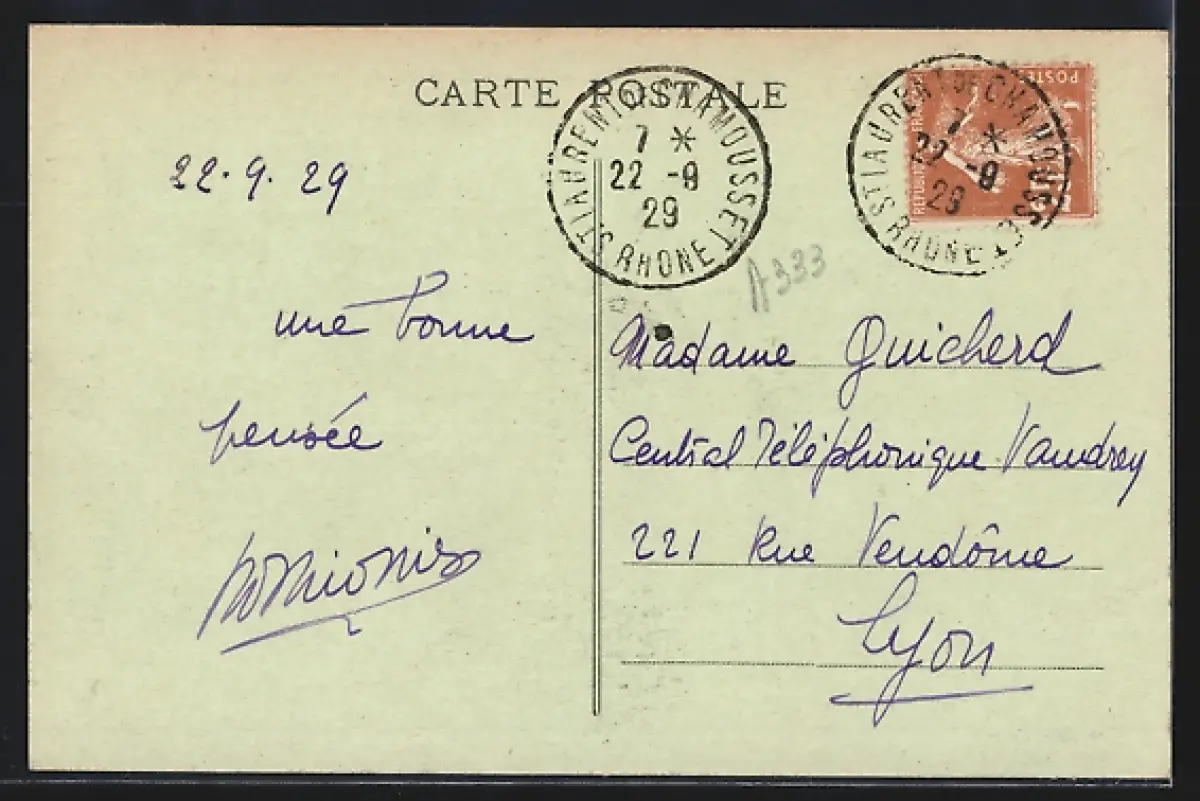 CARTE POSTALE
ST LAURENT DE CHAMOUSSET
7 *
22 -9
29
RHONE
ST LAURENT DE CHAMOUSSET
7 *
22 -9
29
RHONE
POSTES
22.9.29
A333
une bonne
pensée
Madame Guicherd
Central Téléphonique Vaudrey
221 Rue Vendôme
Lyon